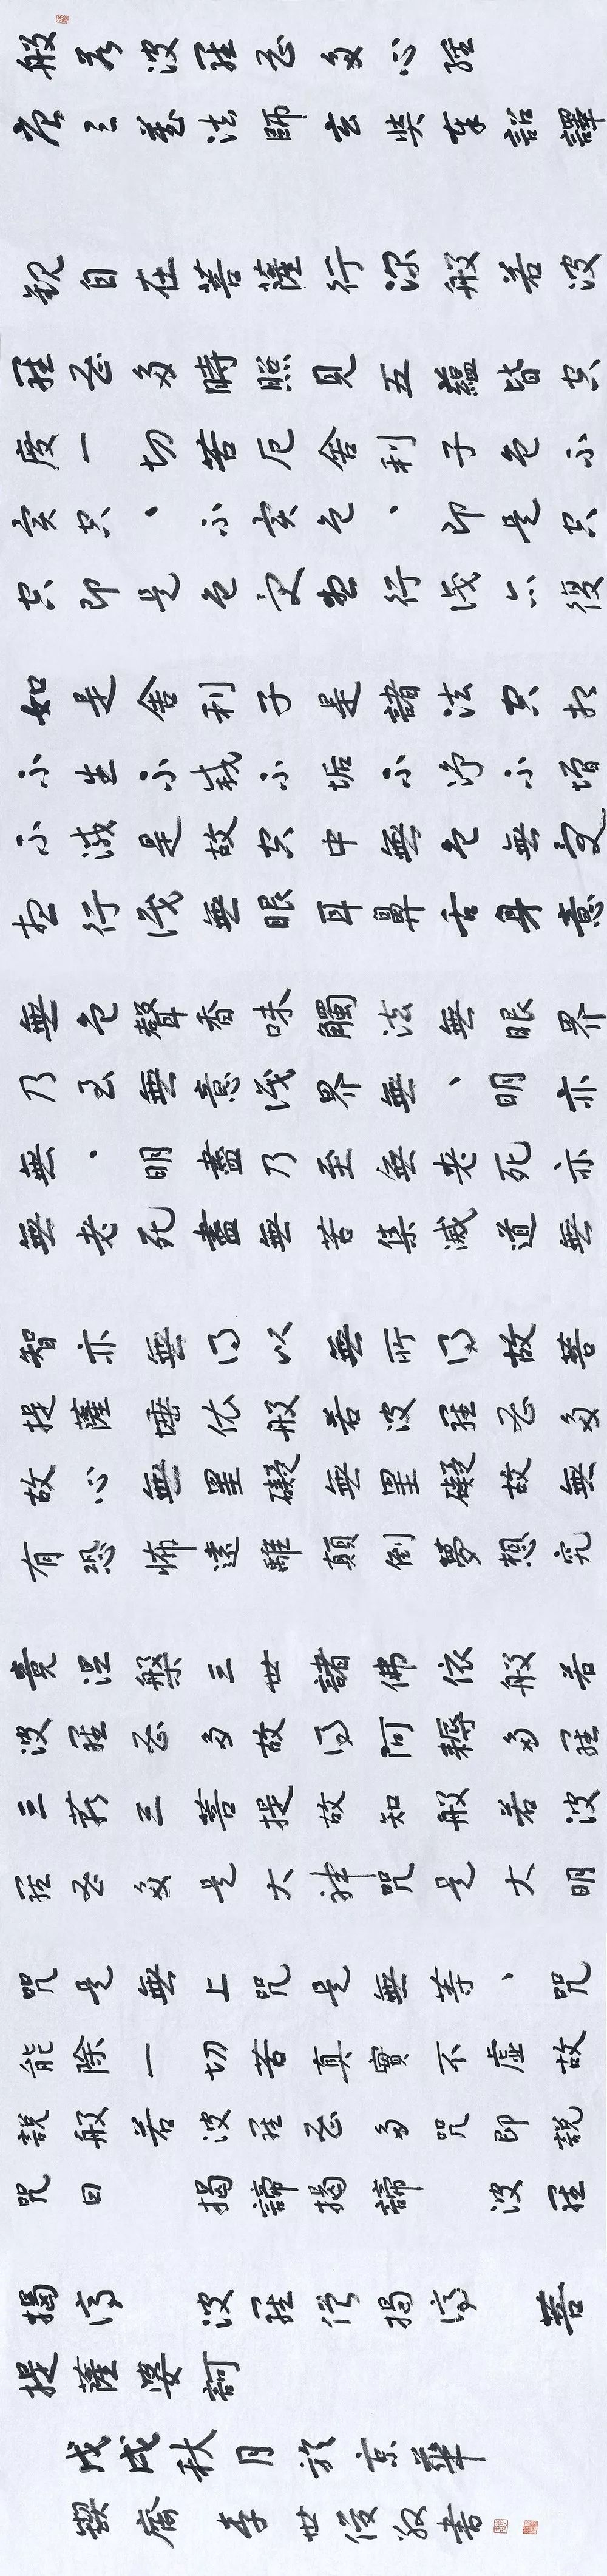 般若波羅蜜多心經
唐三藏法師玄奘奉詔譯
觀自在菩薩行深般若波
羅蜜多時照見五蘊皆空
度一切苦厄舍利子色不
異空、不異色、即是空
空即是色受想行識亦復
如是舍利子是諸法空相
不生不滅不垢不淨不增
不減是故空中無色無受
想行識無眼耳鼻舌身意
無色聲香味觸法無眼界
乃至無意識界無、明亦
無、明盡乃至無老死亦
無老死盡無苦集滅道無
智亦無得以無所得故菩
提薩埵依般若波羅蜜多
故心無罣礙無罣礙故無
有恐怖遠離顛倒夢想究
竟涅槃三世諸佛依般若
波羅蜜多故得阿耨多羅
三藐三菩提故知般若波
羅蜜多是大神咒是大明
咒是無上咒是無等、咒
能除一切苦真實不虛故
說般若波羅蜜多咒即說
咒曰 揭諦揭諦 波羅
揭諦 波羅僧揭諦 菩
提薩婆訶
戊戌秋月於京華
鍥齋 李世俊敬書